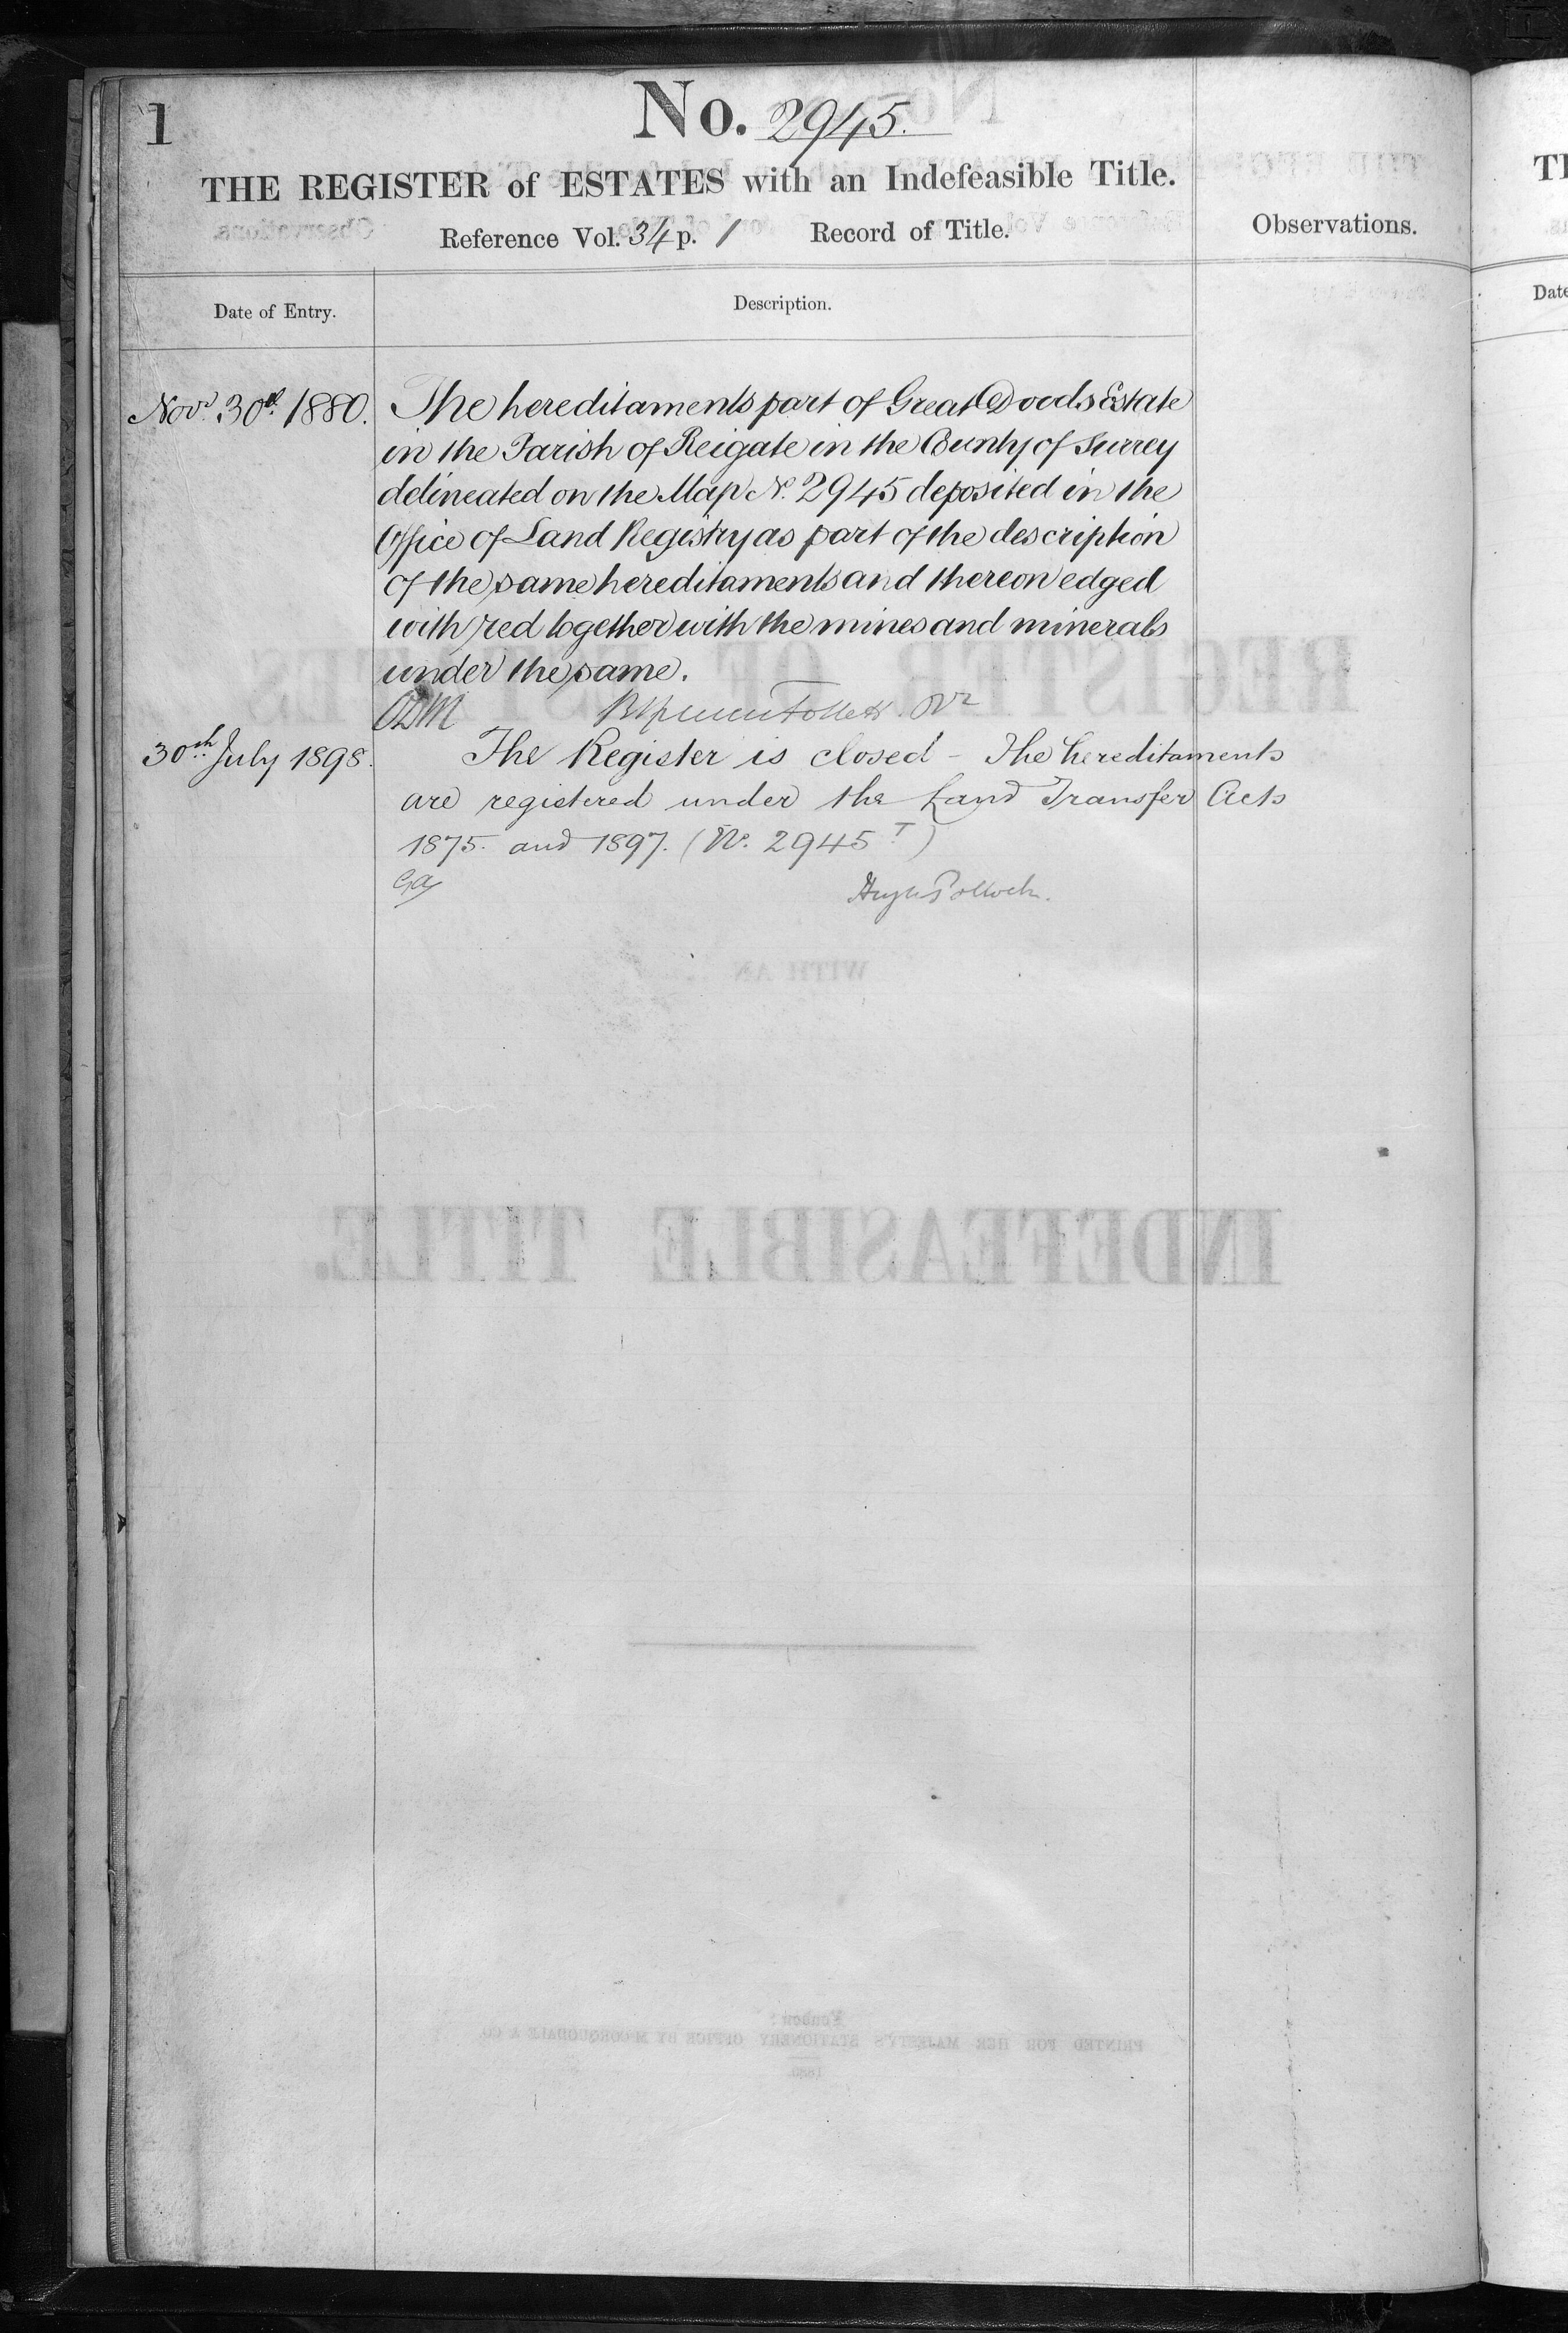 1
No. 2945.
THE REGISTER of ESTATES with an Indefeasible Title.
Reference Vol. 34 p. 1 Record of Title.
Observations.
Date of Entry.
Description.
Novr. 30th. 1880.
The hereditaments part of Great Doods Estate
in the Parish of Reigate in the County of Surrey
delineated on the Map No. 2945 deposited in the
Office of Land Registry as part of the description
of the same hereditaments and thereon edged
with red together with the mines and minerals
under the same.
Follett
30th July 1898.
The Register is closed - The hereditaments
are registered under the Land Transfer Acts
1875. and 1897. (No. 2945 T)
Hugh Pollock.
REGISTER OF ESTATES
WITH AN
INDEFEASIBLE TITLE.
London:
PRINTED FOR HER MAJESTY'S STATIONERY OFFICE BY McCORQUODALE & CO.